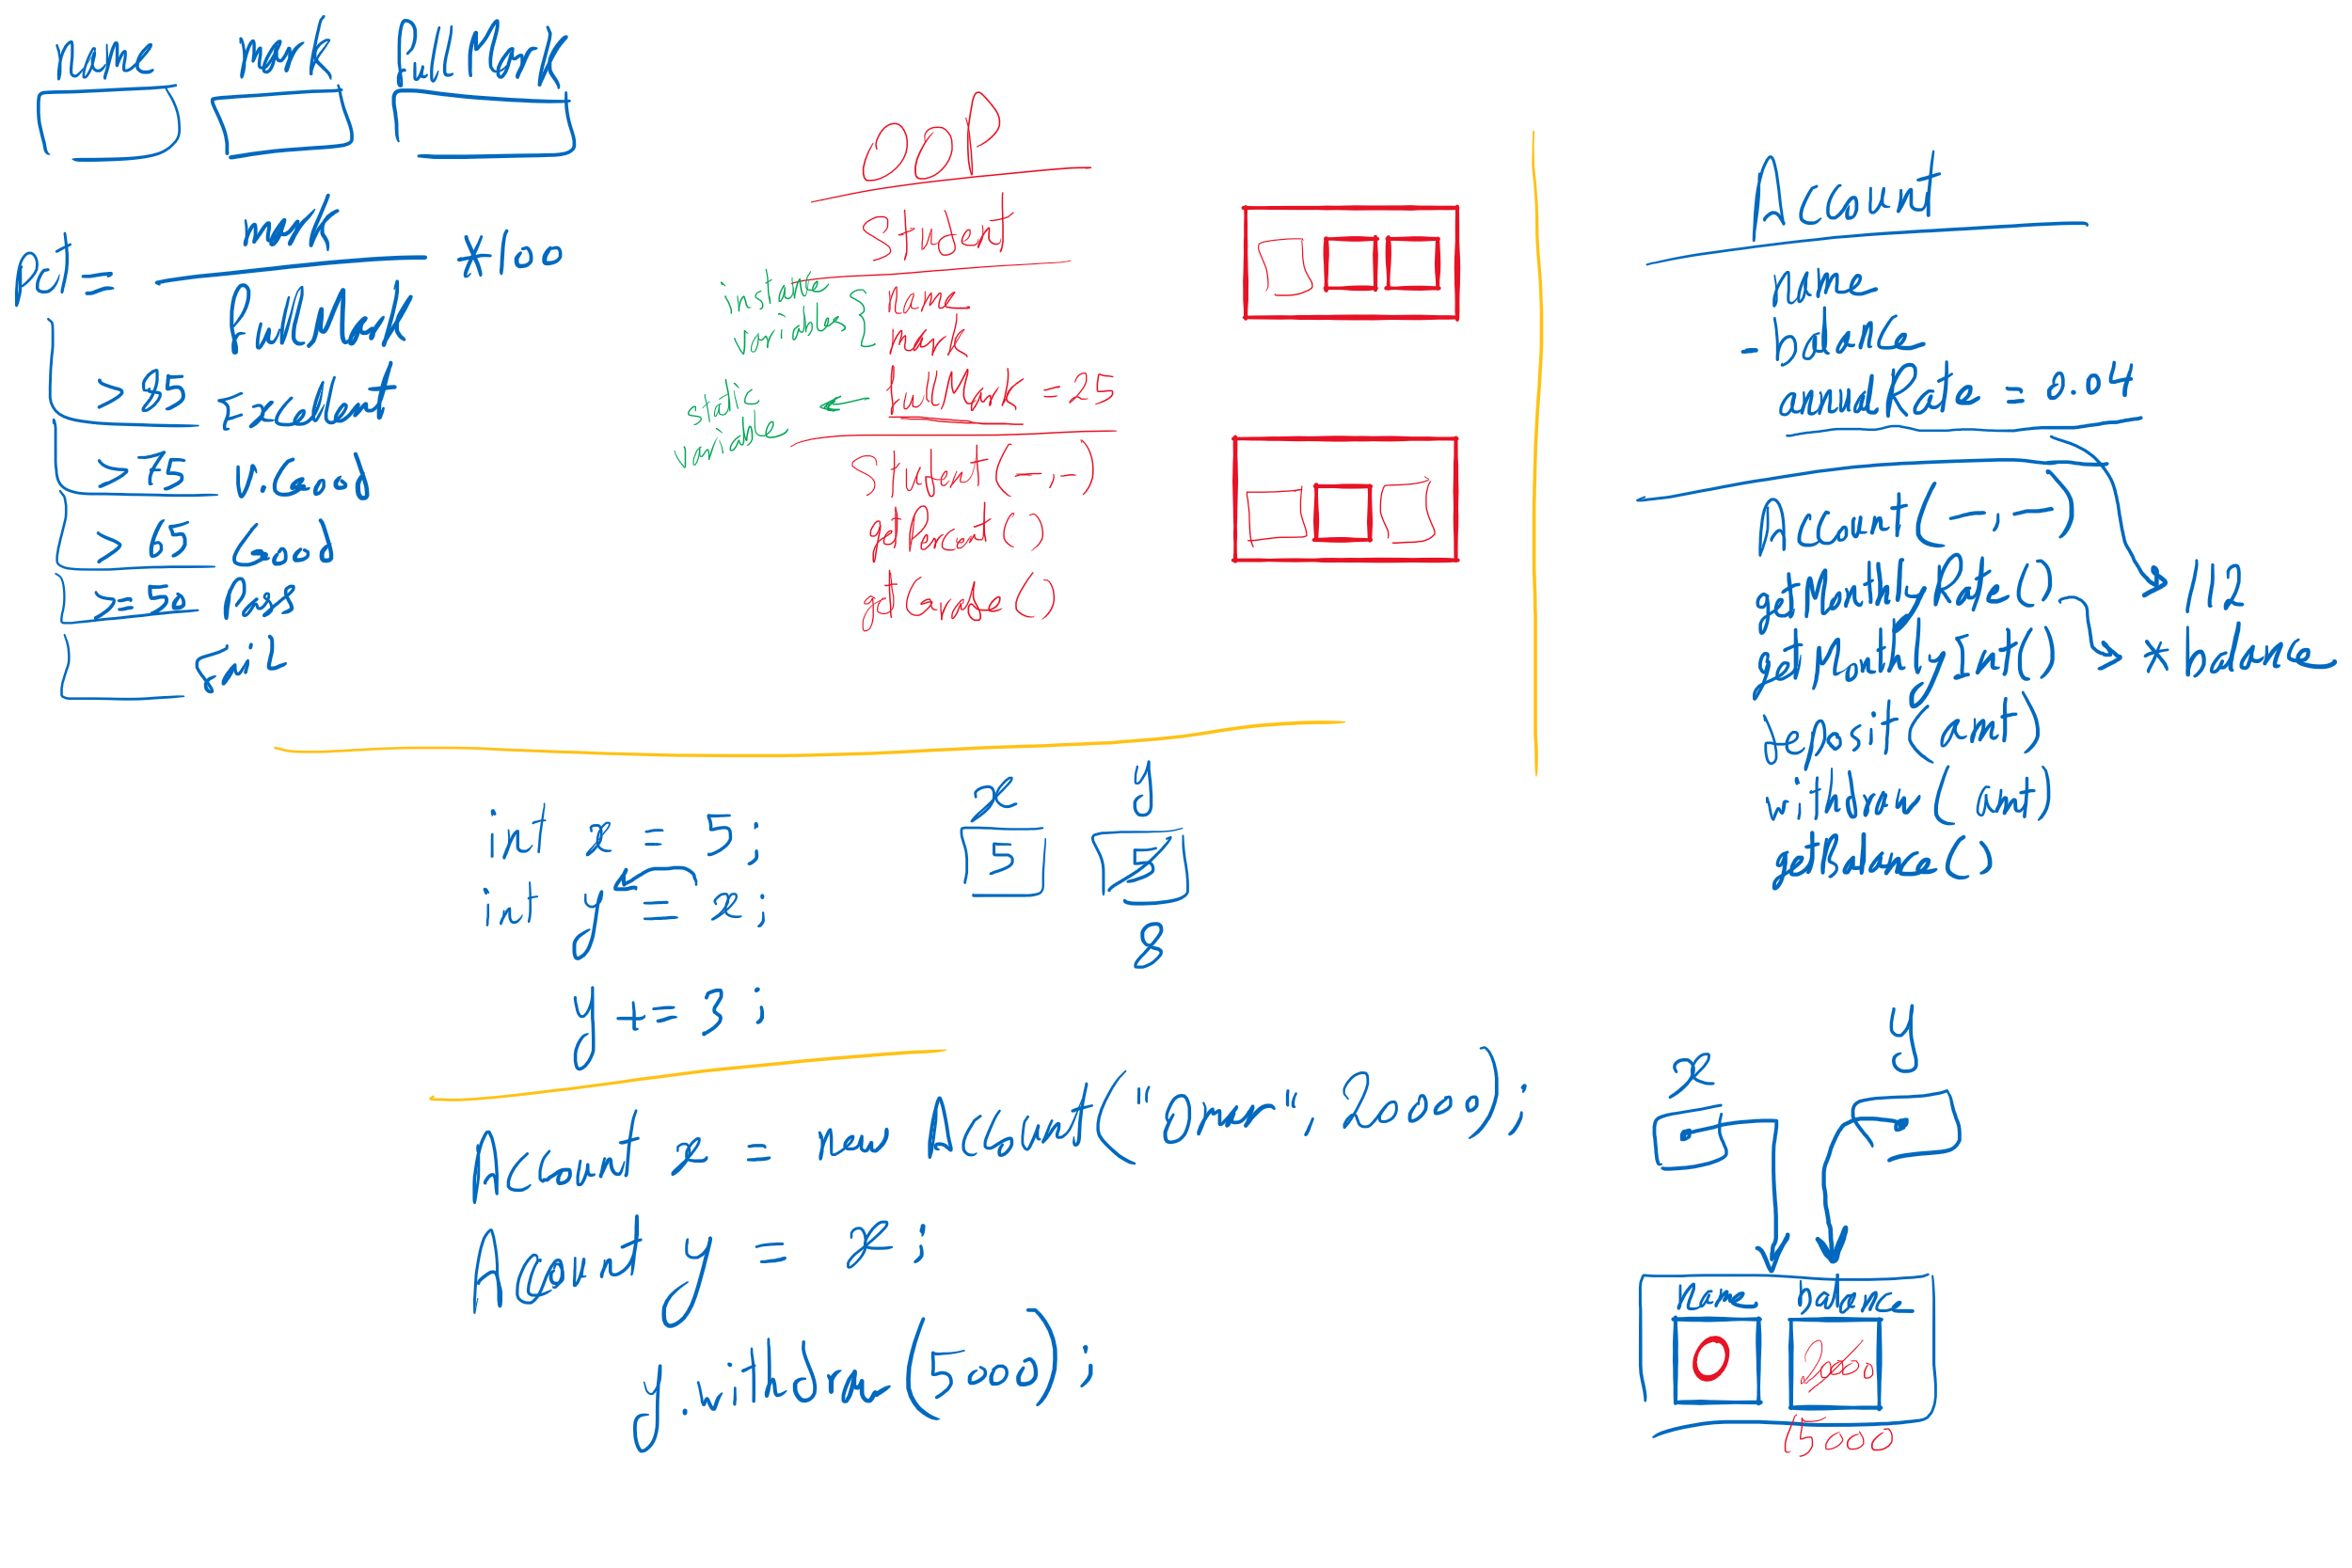 name mark fullMark
pct = mark / fullMark * 100
> 85 Excellent
> 75 V.Good
> 65 Good
>= 50 Pass
Fail
OOP
Student
instance
variables {
name
mark
static
variable ←
fullMark = 25
Student(—,—)
getPercent()
getGrade()
Account
name
- balance
annualRate = 0.04
Account(—,—)
getMonthlyRate() > /12
getMonthlyInt() > * balance
deposit(amt)
withdraw(amt)
getBalance()
int x = 5;
int y = x;
y += 3;
x y
5 5
8
Account x = new Account("Omar", 20000);
Account y = x;
y.withdraw(5000);
x y
name balance
O 20000
15000